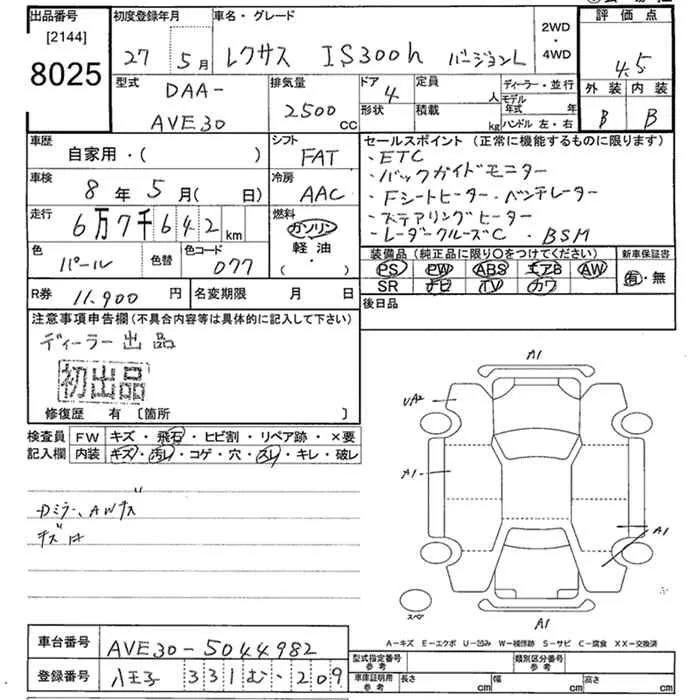 出品番号 初度登録年月 車名・グレード 評価点
[2144]
8025
27 5月 レクサス IS300h バージョンL 2WD・4WD 4.5
型式 DAA- AVE30 排気量 2500 CC ドア 4 定員 人 ディーラー・並行 外装 内装
形状 積載 kg モデル年式 年 ハンドル 左・右 B B
車歴 自家用・( ) シフト FAT
セールスポイント(正常に機能するものに限ります)
・ETC
・バックガイドモニター
・Fシートヒーター・ベンチレーター
・ステアリングヒーター
・レーダークルーズC ・BSM
車検 8年 5月( 日) 冷房 AAC
走行 6万7千642km 燃料 ガソリン 軽油 ( ・ )
色 パール 色替 色コード 077
装備品(純正品に限り〇をつけてください) 新車保証書
PS PW ABS エアB AW 有・無
SR ナビ TV カワ
R券 11,900円 名変期限 月 日 後日品
注意事項申告欄(不具合内容等は具体的に記入して下さい)
ディーラー出品
初出品
修復歴 有 〔箇所 〕
検査員 FW キズ・飛石・ヒビ割・リペア跡・×要
記入欄 内装 キズ・汚レ・コゲ・穴・スレ・キレ・破レ
Dミラー、AWキズ
A1
UA2
A1
A1
A1
スペア
A-キズ E-エクボ U-凹み W-補修跡 S-サビ C-腐食 XX-交換済
車台番号 AVE30-5044982
登録番号 八王子 331 む ・209
型式指定番号 参考 類別区分番号 参考
車庫証明用 参考 長さ cm 幅 cm 高さ cm